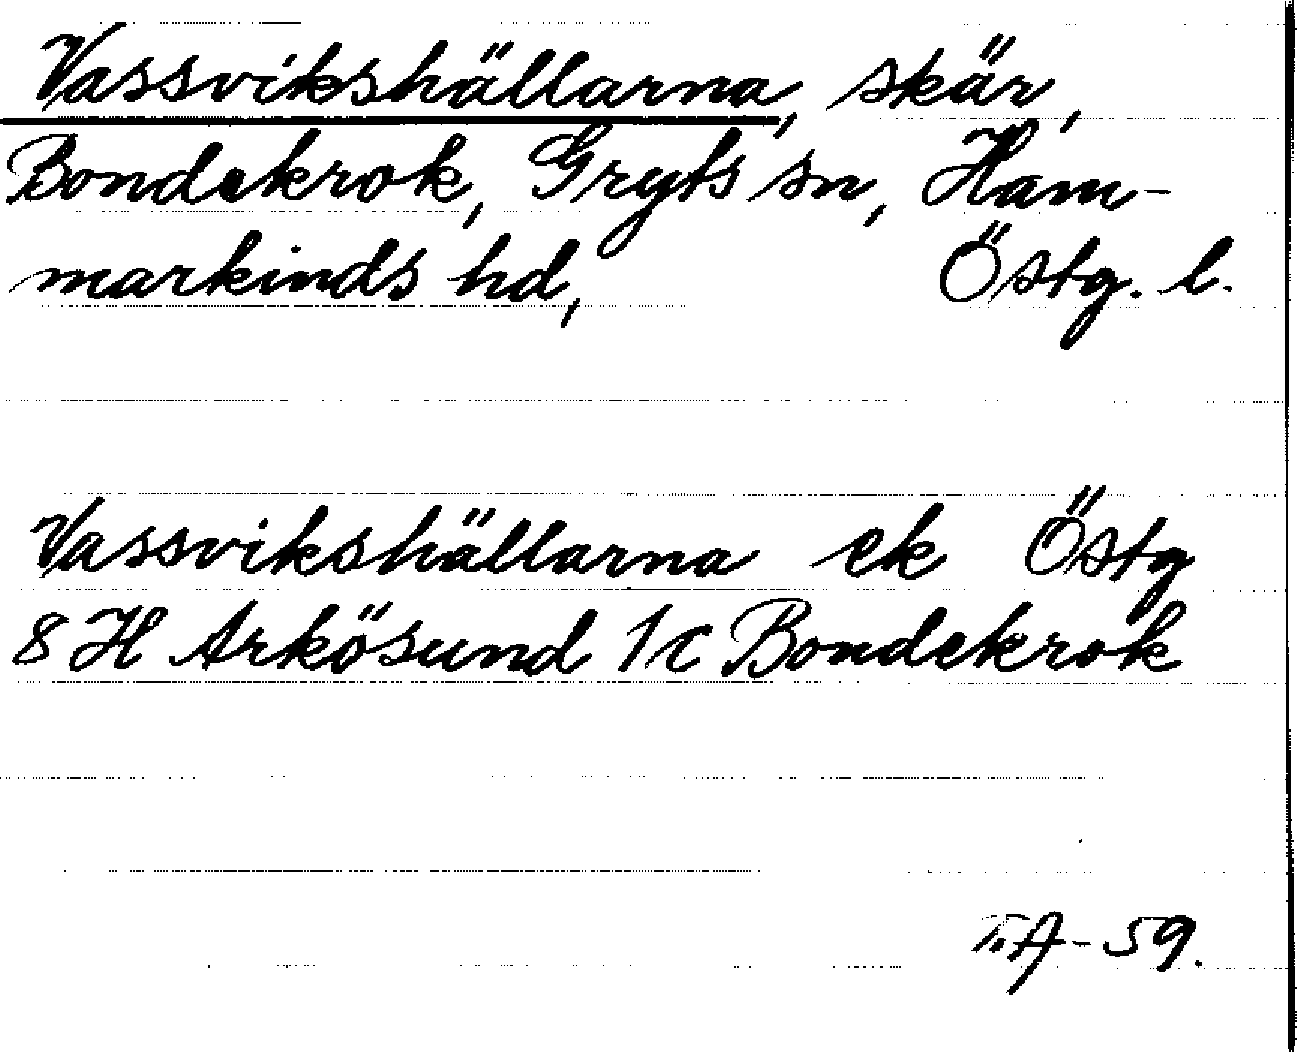 Vassvikshällarna, skär,
Bondekrok, Gryts sn, Ham-
markinds hd, Östg. l.
Vassvikshällarna ek Östg
8 H Arkösund 1c Bondekrok
T.A-59.